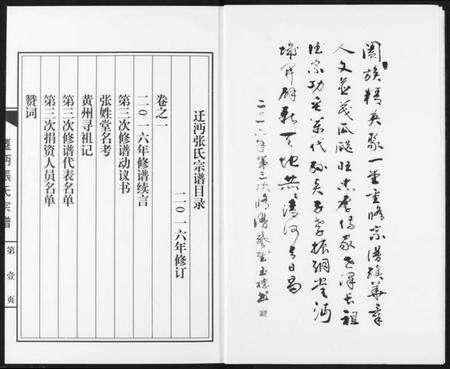 阖族精英聚一堂重修宗谱续华章
人文蔚茂瓜瓞旺忠孝传家世泽长祖
德宗功
代
振纲堂沔
城
天地共
河与日昌
二〇一六年第三次修谱
迁沔张氏宗谱目录
二〇一六年修订
卷之一
二〇一六年修谱续言
第三次修谱动议书
张姓堂名考
黄州寻祖记
第三次修谱代表名单
第三次捐资人员名单
赞词
迁沔張氏宗谱
第壹页